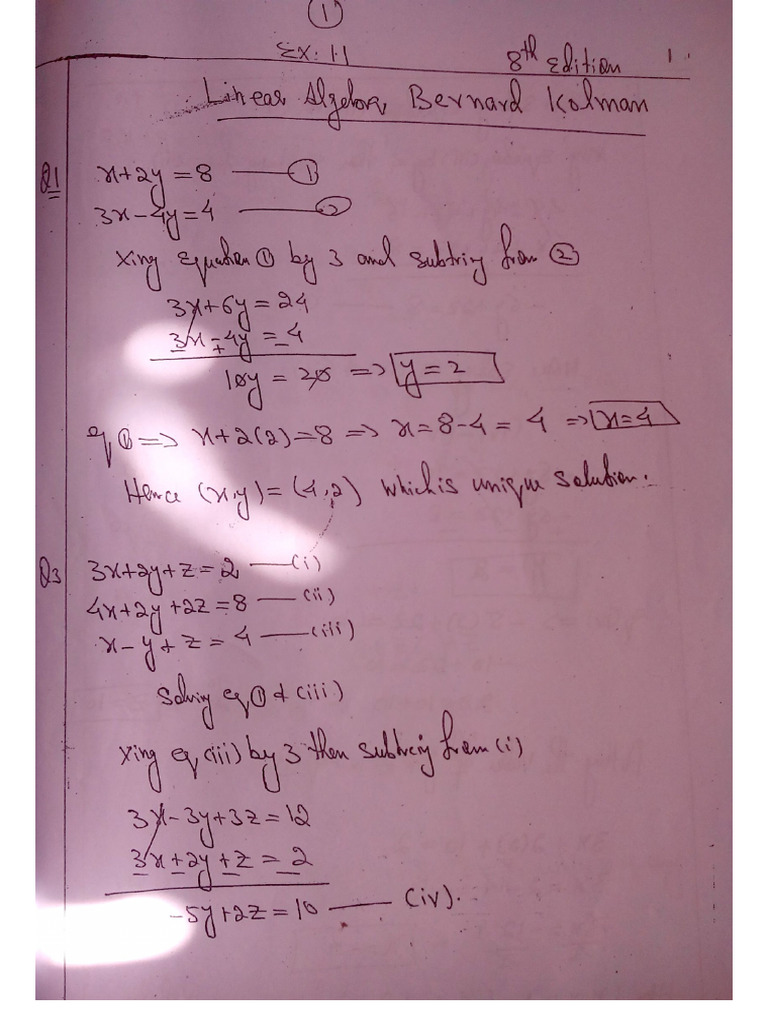 1
Ex: 1.1 8th Edition 1
Linear Algebra, Bernard Kolman
Q1 x+2y=8 —— 1
3x-4y=4 —— 2
Xing Equation 1 by 3 and subtring from 2
3x+6y=24
3x-4y=4
10y=20 => y=2
eq 1 => x+2(2)=8 => x=8-4=4 => x=4
Hence (x,y)=(4,2) which is unique solution.
Q3 3x+2y+z=2 —— (i)
4x+2y+2z=8 —— (ii)
x-y+z=4 —— (iii)
Solving eq 1 & (iii)
Xing eq (iii) by 3 then subtrciy from (i)
3x-3y+3z=12
3x+2y+z=2
-5y+2z=10 —— (iv).